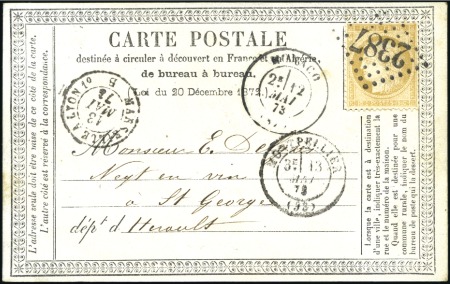 CARTE POSTALE
destinée à circuler à découvert en France et en Algérie,
de bureau à bureau.
Loi du 20 Décembre 1872.
2387
2E 12
MAI
73
MARS
A LYON 1°
13
MAI
73
MONTPELLIER
3E 13
MAI
73
(33)
Monsieur E. De
Negt en vin
a St George
dépt d'Herault
L'adresse seule doit être mise de ce côté de la carte.
L'autre côté est réservé à la correspondance.
Lorsque la carte est à destination
d'une ville, indiquer très-exactement la
rue et le numéro de la maison.
Quand elle est destinée pour une
commune rurale, indiquer le nom du
bureau de poste qui la dessert.